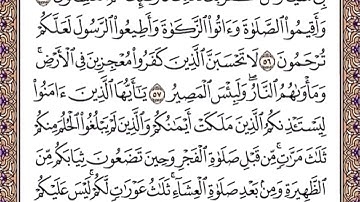 وَأَقِيمُوا۟ ٱلصَّلَوٰةَ وَءَاتُوا۟ ٱلزَّكَوٰةَ وَأَطِيعُوا۟ ٱلرَّسُولَ لَعَلَّكُمْ
تُرْحَمُونَ ٥٦ لَا تَحْسَبَنَّ ٱلَّذِينَ كَفَرُوا۟ مُعْجِزِينَ فِى ٱلْأَرْضِ ۚ
وَمَأْوَىٰهُمُ ٱلنَّارُ ۖ وَلَبِئْسَ ٱلْمَصِيرُ ٥٧ يَـٰٓأَيُّهَا ٱلَّذِينَ ءَامَنُوا۟
لِيَسْتَـْٔذِنكُمُ ٱلَّذِينَ مَلَكَتْ أَيْمَـٰنُكُمْ وَٱلَّذِينَ لَمْ يَبْلُغُوا۟ ٱلْحُلُمَ مِنكُمْ
ثَلَـٰثَ مَرَّٰتٍ ۚ مِّن قَبْلِ صَلَوٰةِ ٱلْفَجْرِ وَحِينَ تَضَعُونَ ثِيَابَكُم مِّنَ
ٱلظَّهِيرَةِ وَمِنۢ بَعْدِ صَلَوٰةِ ٱلْعِشَآءِ ۚ ثَلَـٰثُ عَوْرَٰتٍ لَّكُمْ ۚ لَيْسَ عَلَيْكُمْ